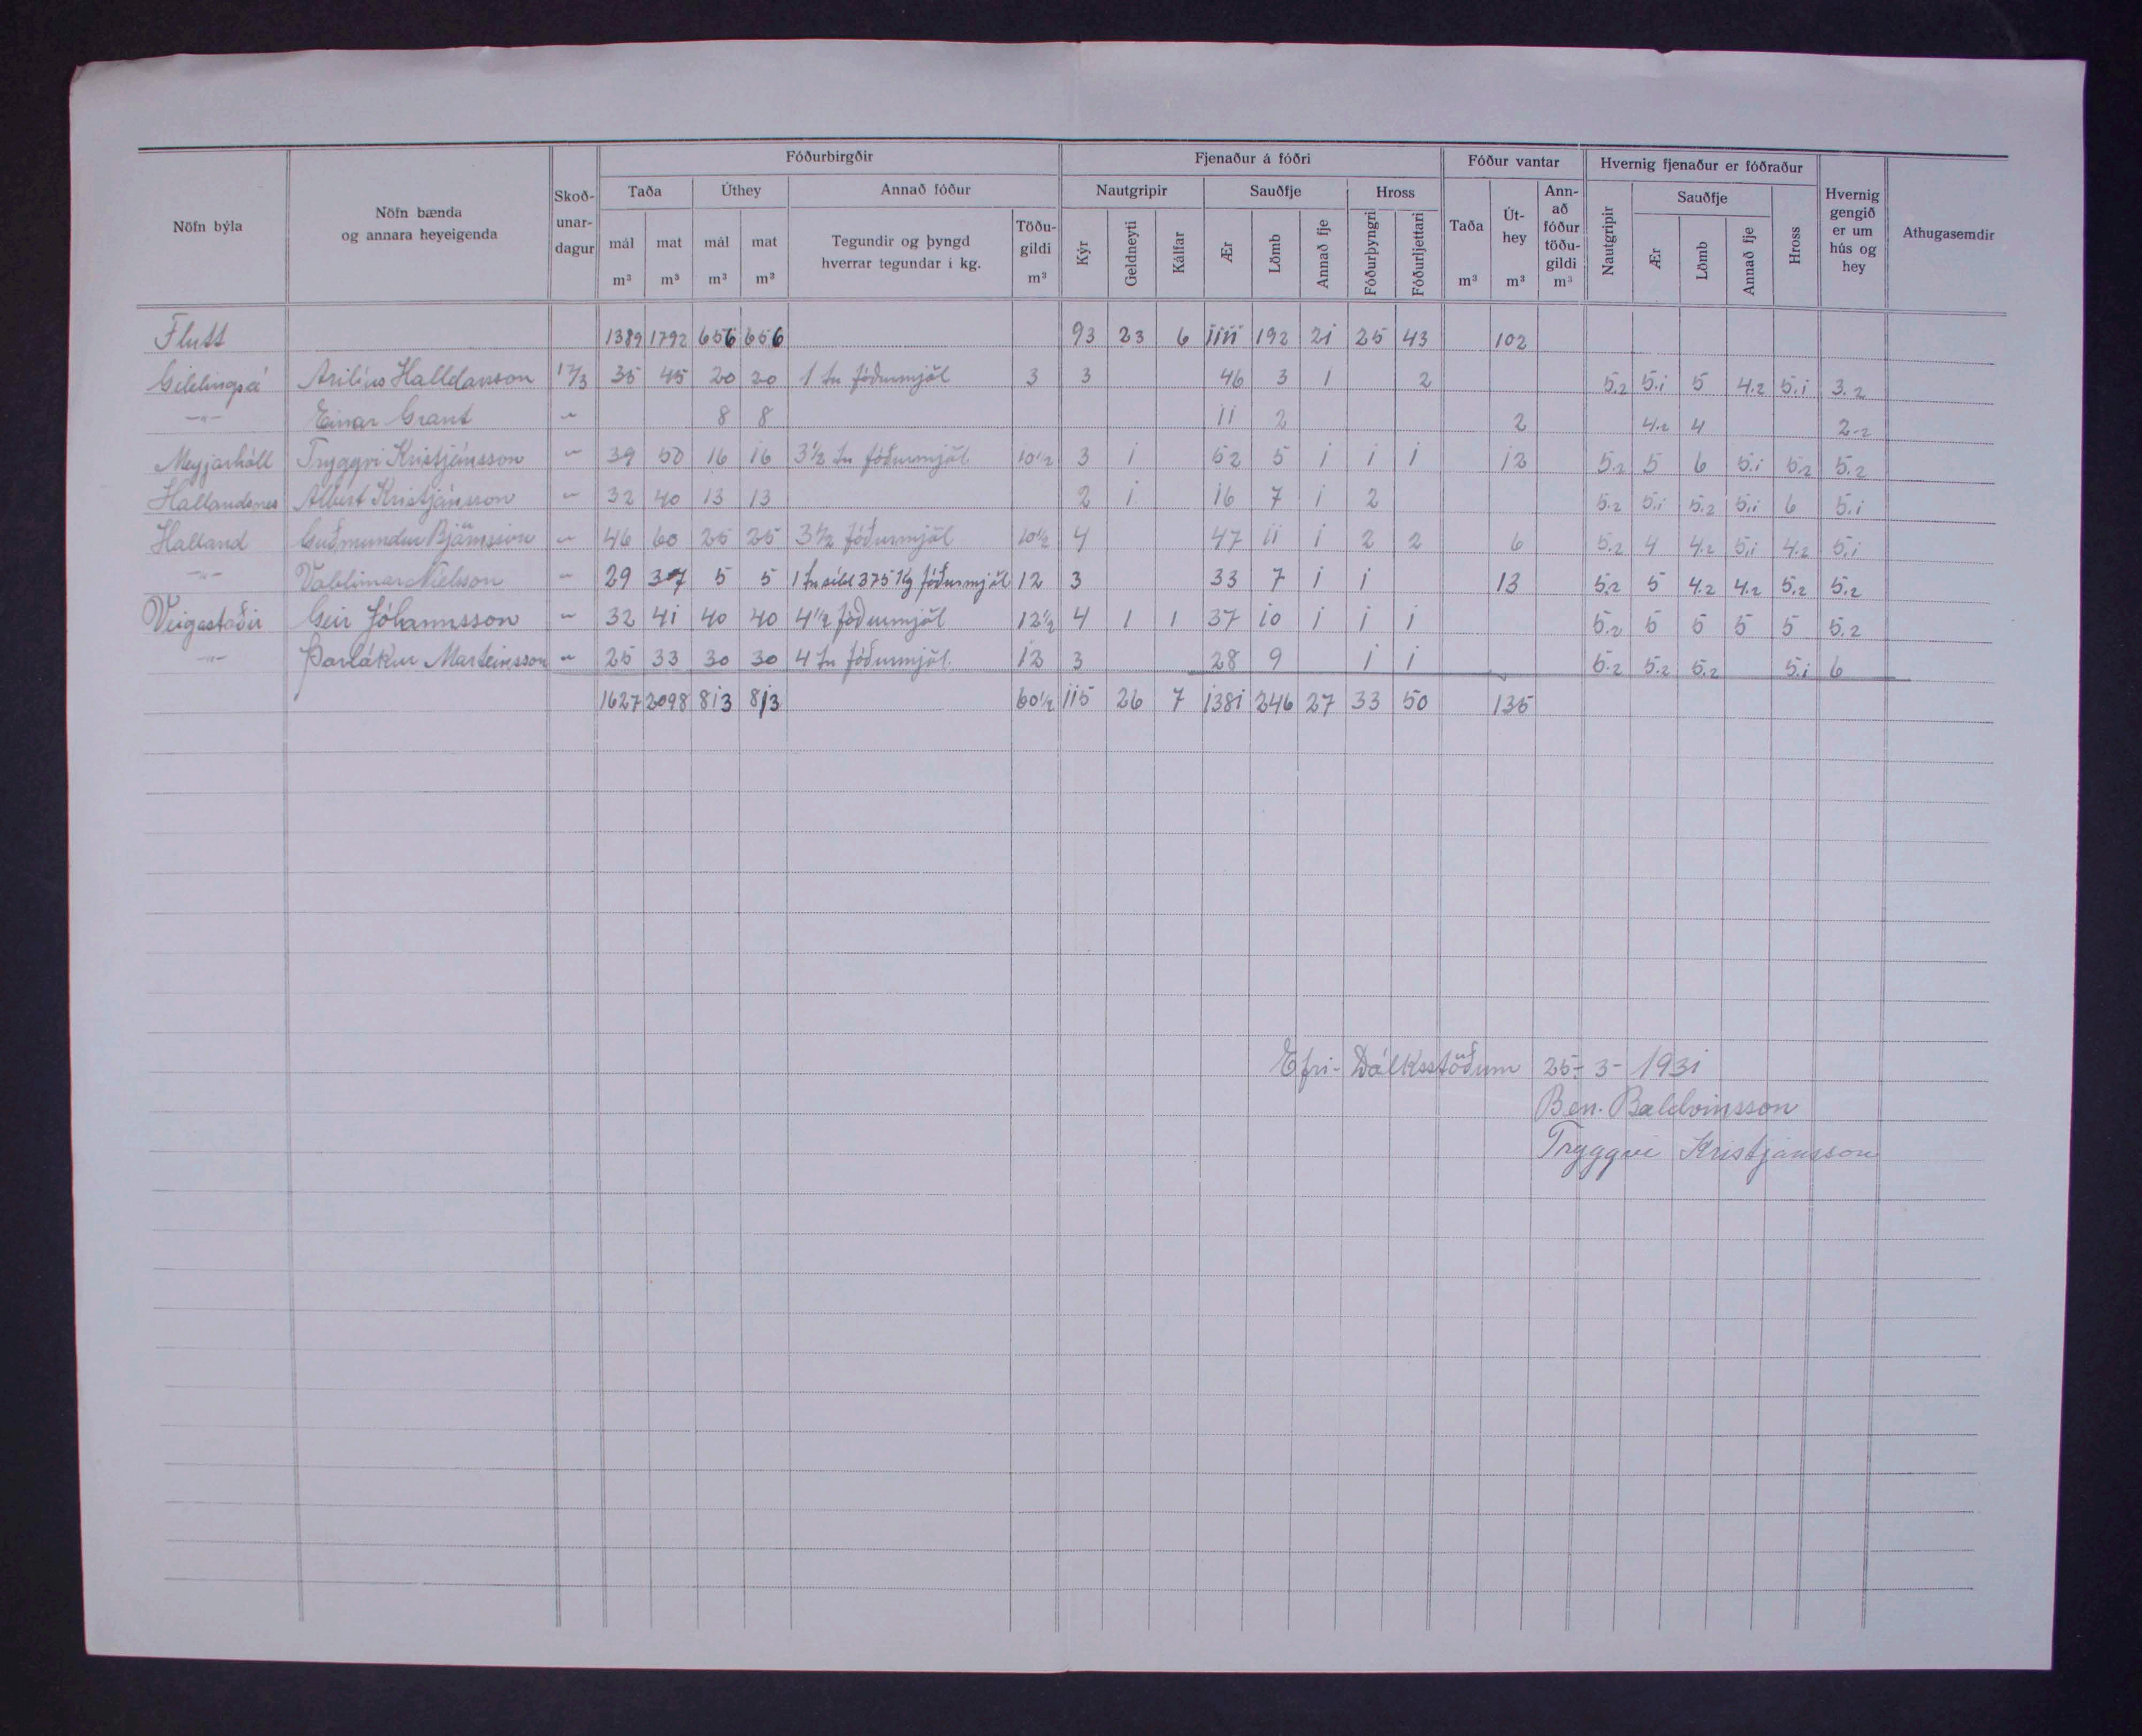 Fóðurbirgðir Fjenaður á fóðri Fóður vantar Hvernig fjenaður er fóðraður
Nöfn býla Nöfn bænda og annara heyeigenda Skoð-unar-dagur Taða Úthey Annað fóður Nautgripir Sauðfje Hross Taða m³ Út-hey m³ Ann-að fóður töðu-gildi m³ Nautgripir Sauðfje Hross Hvernig gengið er um hús og hey Athugasemdir
mál m³ mat m³ mál m³ mat m³ Tegundir og þyngd hverrar tegundar í kg. Töðu-gildi m³ Kýr Geldneyti Kálfar Ær Lömb Annað fje Fóðurþyngri Fóðurljettari Ær Lömb Annað fje
Flutt 1389 1792 656 656 93 23 6 1111 192 21 25 43 102
Geldingsá Arilíus Halldórsson 17/3 35 45 20 20 1 tn fóðurmjöl 3 3 46 3 1 2 5.2 5.1 5 4.2 5.1 3.2
-"- Einar Grant " 8 8 11 2 2 4.2 4 2-2
Meyjarhóll Tryggvi Kristjánsson " 39 50 16 16 3½ tn fóðurmjöl 10½ 3 1 52 5 1 1 1 12 5.2 5 6 5.1 5.2 5.2
Hallandsnes Albert Kristjánsson " 32 40 13 13 2 1 16 7 1 2 5.2 5.1 5.2 5.1 6 5.1
Halland Guðmundur Björnsson " 46 60 25 25 3½ fóðurmjöl 10½ 4 47 11 1 2 2 6 5.2 4 4.2 5.1 4.2 5.1
-"- Valdimar Nielsson " 29 37 5 5 1 tn síld 375 Kg fóðurmjöl 12 3 33 7 1 1 13 5.2 5 4.2 4.2 5.2 5.2
Veigastaðir Geir Jóhannsson " 32 41 40 40 4½ fóðurmjöl 12½ 4 1 1 37 10 1 1 1 5.2 5 5 5 5 5.2
-"- Þorlákur Marteinsson " 25 33 30 30 4 tn fóðurmjöl. 12 3 28 9 1 1 5.2 5.2 5.2 5.1 6
1627 2098 813 813 60½ 115 26 7 1381 246 27 33 50 135
Efri-Dálksstöðum 25-3-1931
Ben. Baldvinsson
Tryggvi Kristjánsson